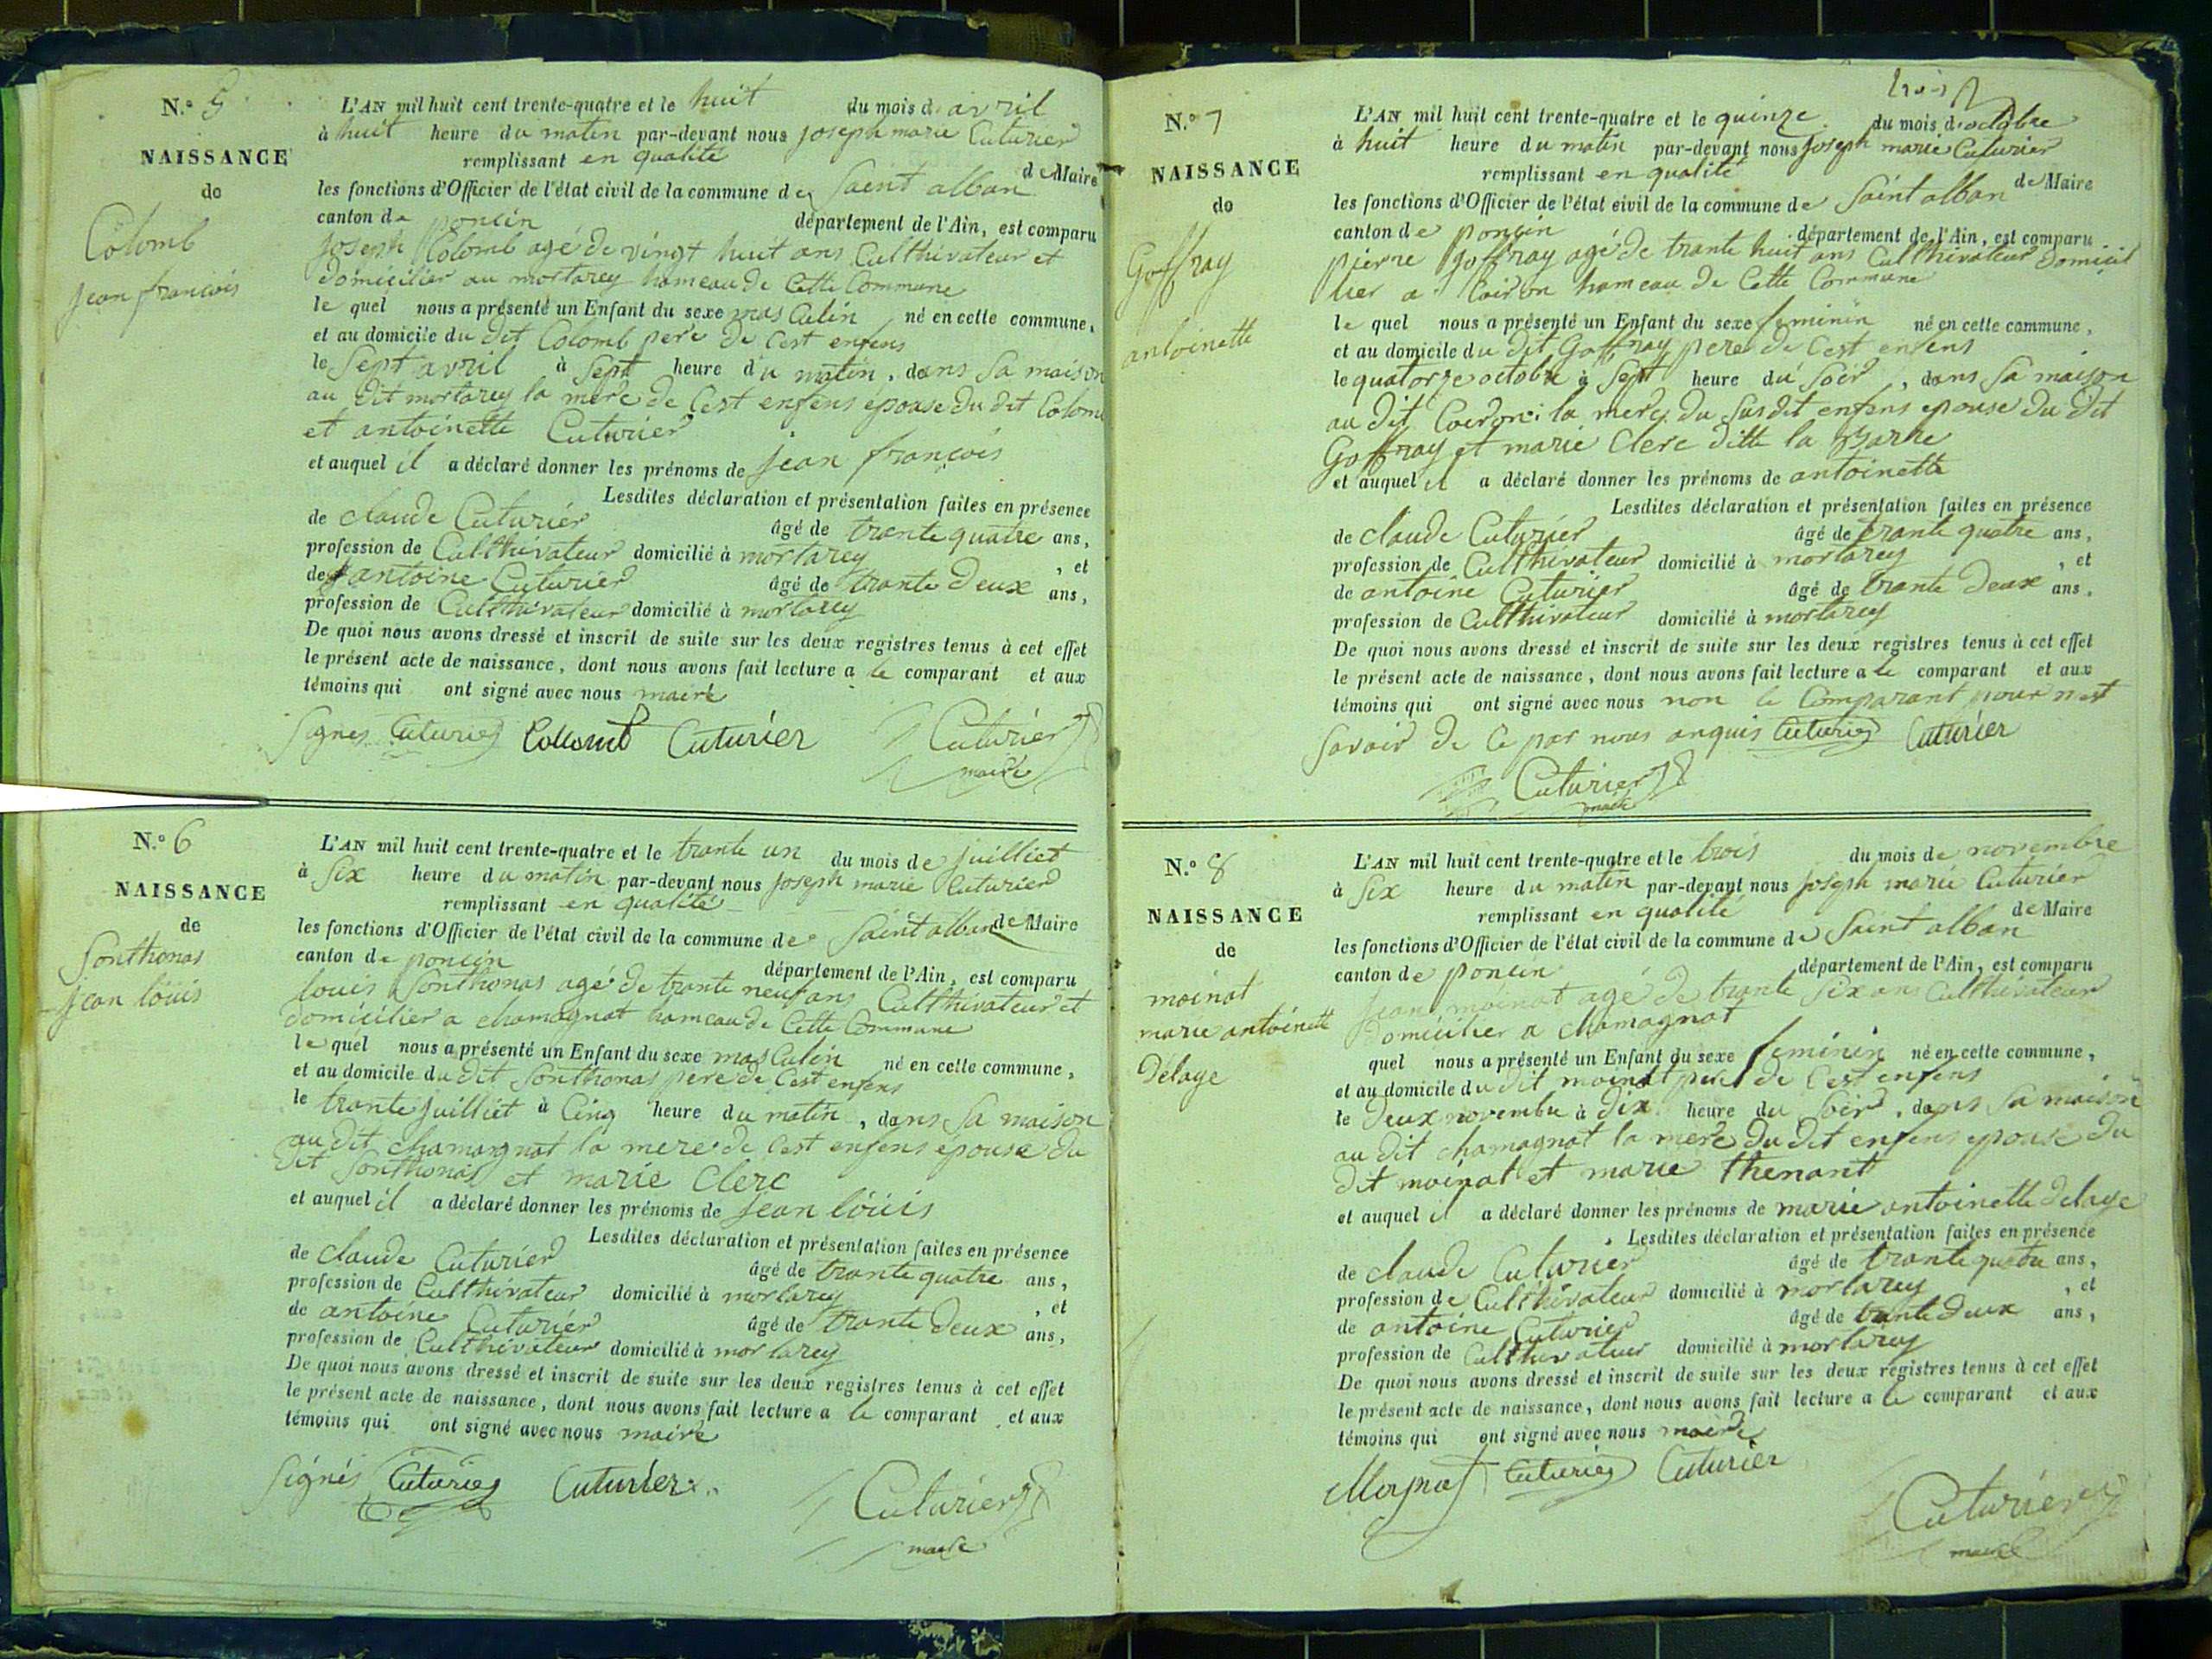 N.o 5
NAISSANCE
de
Colomb
jean francois
L'AN mil huit cent trente-quatre et le huit du mois d avril
à huit heure du matin par-devant nous joseph marie Cuturier
remplissant en qualité de Maire
les fonctions d'Officier de l'état civil de la commune de Saint alban
canton de poncin département de l'Ain, est comparu
joseph Colomb agé de vingt huit ans Culthivateur et
domicilier au mortarey hameau de Cette Commune
le quel nous a présenté un Enfant du sexe mas Culin né en cette commune,
et au domicile du dit Colomb pere de Cest enfens
le Sept avril à Sept heure du matin, dans Sa maison
au dit mortarey la mere de Cest enfens epouse du dit Colomb
et antoinette Cuturier
et auquel il a déclaré donner les prénoms de jean françois
Lesdites déclaration et présentation faites en présence
de claude Cuturier âgé de trante quatre ans,
profession de Culthivateur domicilié à mortarey , et
de antoine Cuturier âgé de trante deux ans,
profession de Culthivateur domicilié à mortarey
De quoi nous avons dressé et inscrit de suite sur les deux registres tenus à cet effet
le présent acte de naissance, dont nous avons fait lecture a le comparant et aux
témoins qui ont signé avec nous maire
Signés Cuturier Colomb Cuturier Cuturier
maire
N.o 6
NAISSANCE
de
Sonthonas
jean louis
L'AN mil huit cent trente-quatre et le trante un du mois de juilliet
à Six heure du matin par-devant nous joseph marie Cuturier
remplissant en qualité de Maire
les fonctions d'Officier de l'état civil de la commune de Saint alban
canton de poncin département de l'Ain, est comparu
louis Sonthonas agé de trante neuf ans Culthivateur et
domicilier a chamagnat hameau de Cette Commune
le quel nous a présenté un Enfant du sexe mas Culin né en cette commune,
et au domicile du dit Sonthonas pere de Cest enfens
le trante juilliet à Cinq heure du matin, dans Sa maison
au dit chamargnat la mere de Cest enfens épouse du
dit Sonthonas et marie Clerc
et auquel il a déclaré donner les prénoms de jean louis
Lesdites déclaration et présentation faites en présence
de claude Cuturier âgé de trante quatre ans,
profession de Culthivateur domicilié à mortarey , et
de antoine Cuturier âgé de trante deux ans,
profession de Culthivateur domicilié à mortarey
De quoi nous avons dressé et inscrit de suite sur les deux registres tenus à cet effet
le présent acte de naissance, dont nous avons fait lecture a le comparant et aux
témoins qui ont signé avec nous maire
Signés Cuturier Cuturier Cuturier
maire
trois
N.o 7
NAISSANCE
de
Goffray
antoinette
L'AN mil huit cent trente-quatre et le quinze du mois d octobre
à huit heure du matin par-devant nous joseph marie Cuturier
remplissant en qualité de Maire
les fonctions d'Officier de l'état civil de la commune de Saint alban
canton de poncin département de l'Ain, est comparu
pierre Goffray agé de trante huit ans Culthivateur domicil
lier a Coiron hameau de Cette Commune
le quel nous a présenté un Enfant du sexe feminin né en cette commune,
et au domicile du dit Goffray pere de Cest enfens
le quatorze octobre à Sept heure du Soir, dans Sa maison
au dit Coiron la mere du Susdit enfens epouse du dit
Goffray et marie Clerc ditte la
et auquel il a déclaré donner les prénoms de antoinette
Lesdites déclaration et présentation faites en présence
de claude Cuturier âgé de trante quatre ans,
profession de Culthivateur domicilié à mortarey , et
de antoine Cuturier âgé de trante deux ans,
profession de Culthivateur domicilié à mortarey
De quoi nous avons dressé et inscrit de suite sur les deux registres tenus à cet effet
le présent acte de naissance, dont nous avons fait lecture a le comparant et aux
témoins qui ont signé avec nous non le Comparant pour n'est
Savoir de Ce par nous anquis Cuturier Cuturier
Cuturier
maire
N.o 8
NAISSANCE
de
moinat
marie antoinette
délage
L'AN mil huit cent trente-quatre et le trois du mois de novembre
à Six heure du matin par-devant nous joseph marie Cuturier
remplissant en qualité de Maire
les fonctions d'Officier de l'état civil de la commune de Saint alban
canton de poncin département de l'Ain, est comparu
jean moinat agé de trante Six ans Culthivateur
domicilier a chamagnat
quel nous a présenté un Enfant du sexe feminin né en cette commune,
et au domicile du dit moinat pere de Cest enfens
le deux novembre à dix heure du Soir, dans Sa maison
au dit chamagnat la mere du dit enfens epouse du
dit moinat et marie thenant
et auquel il a déclaré donner les prénoms de marie antoinette delage
Lesdites déclaration et présentation faites en présence
de claude Cuturier âgé de trante quatre ans,
profession de Culthivateur domicilié à mortarey , et
de antoine Cuturier âgé de trante deux ans,
profession de Culthivateur domicilié à mortarey
De quoi nous avons dressé et inscrit de suite sur les deux registres tenus à cet effet
le présent acte de naissance, dont nous avons fait lecture a le comparant et aux
témoins qui ont signé avec nous maire
Cuturier Cuturier Cuturier
maire